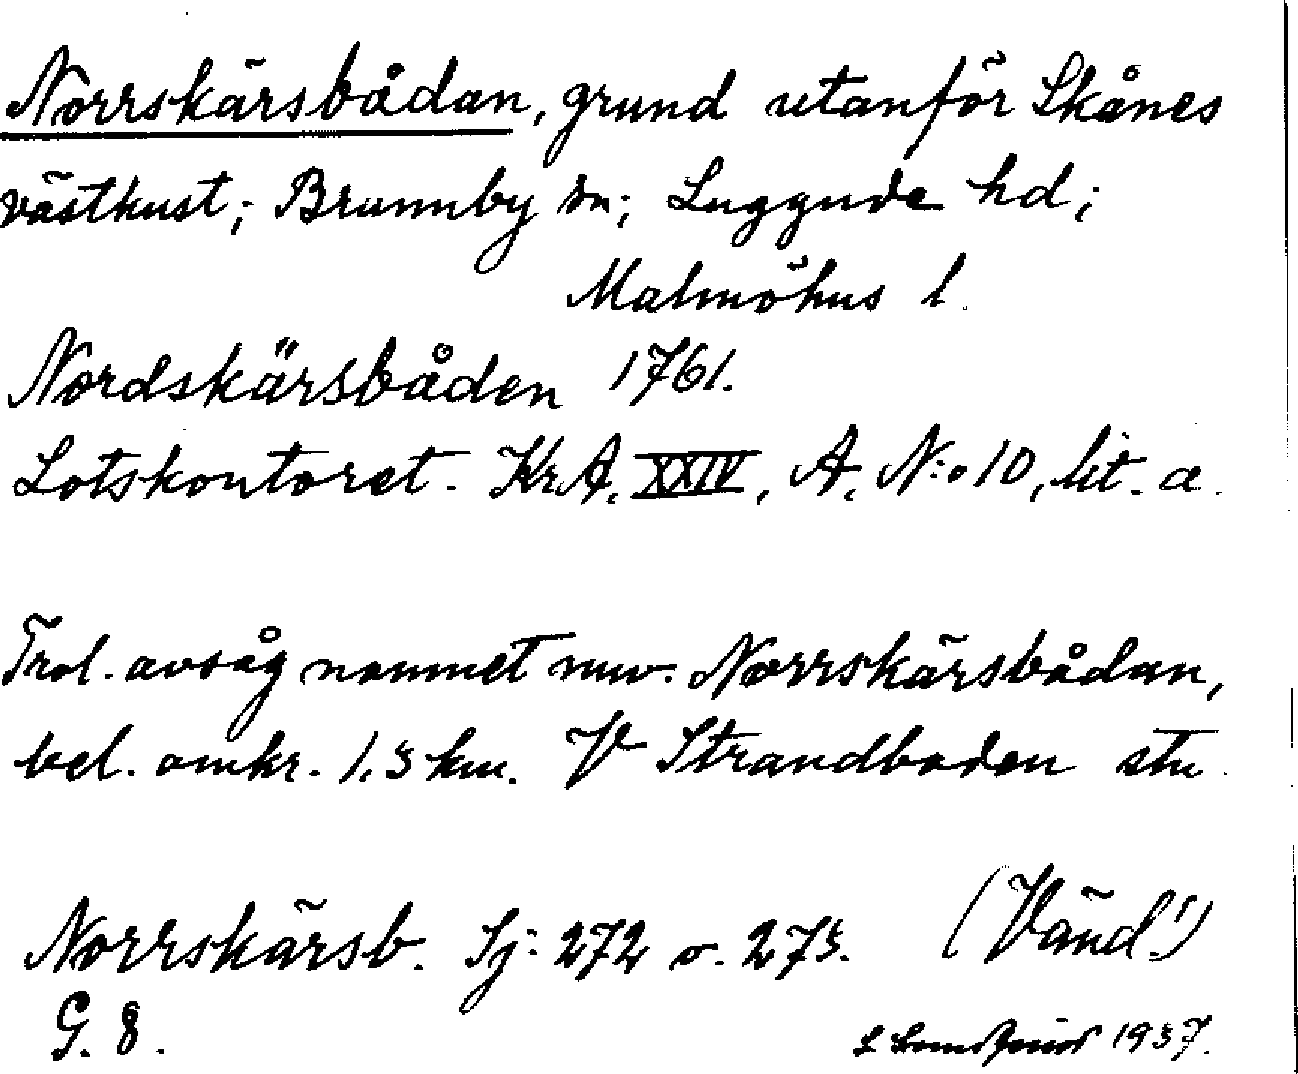 Norrskärsbådan, grund utanför Skånes
västkust; Brunnby sn; Luggude hd;
Malmöhus l.
Nordskärsbåden 1761.
Lotskontoret. KrA, XXIV, A, N:o 10, lit. a.
Trol. avsåg namnet nuv. Norrskärsbådan,
bel. omkr. 1.5 km. V Strandbaden stn.
Norrskärsb. Sj: 272 o. 275. (Vänd!)
G. 8.
1937.